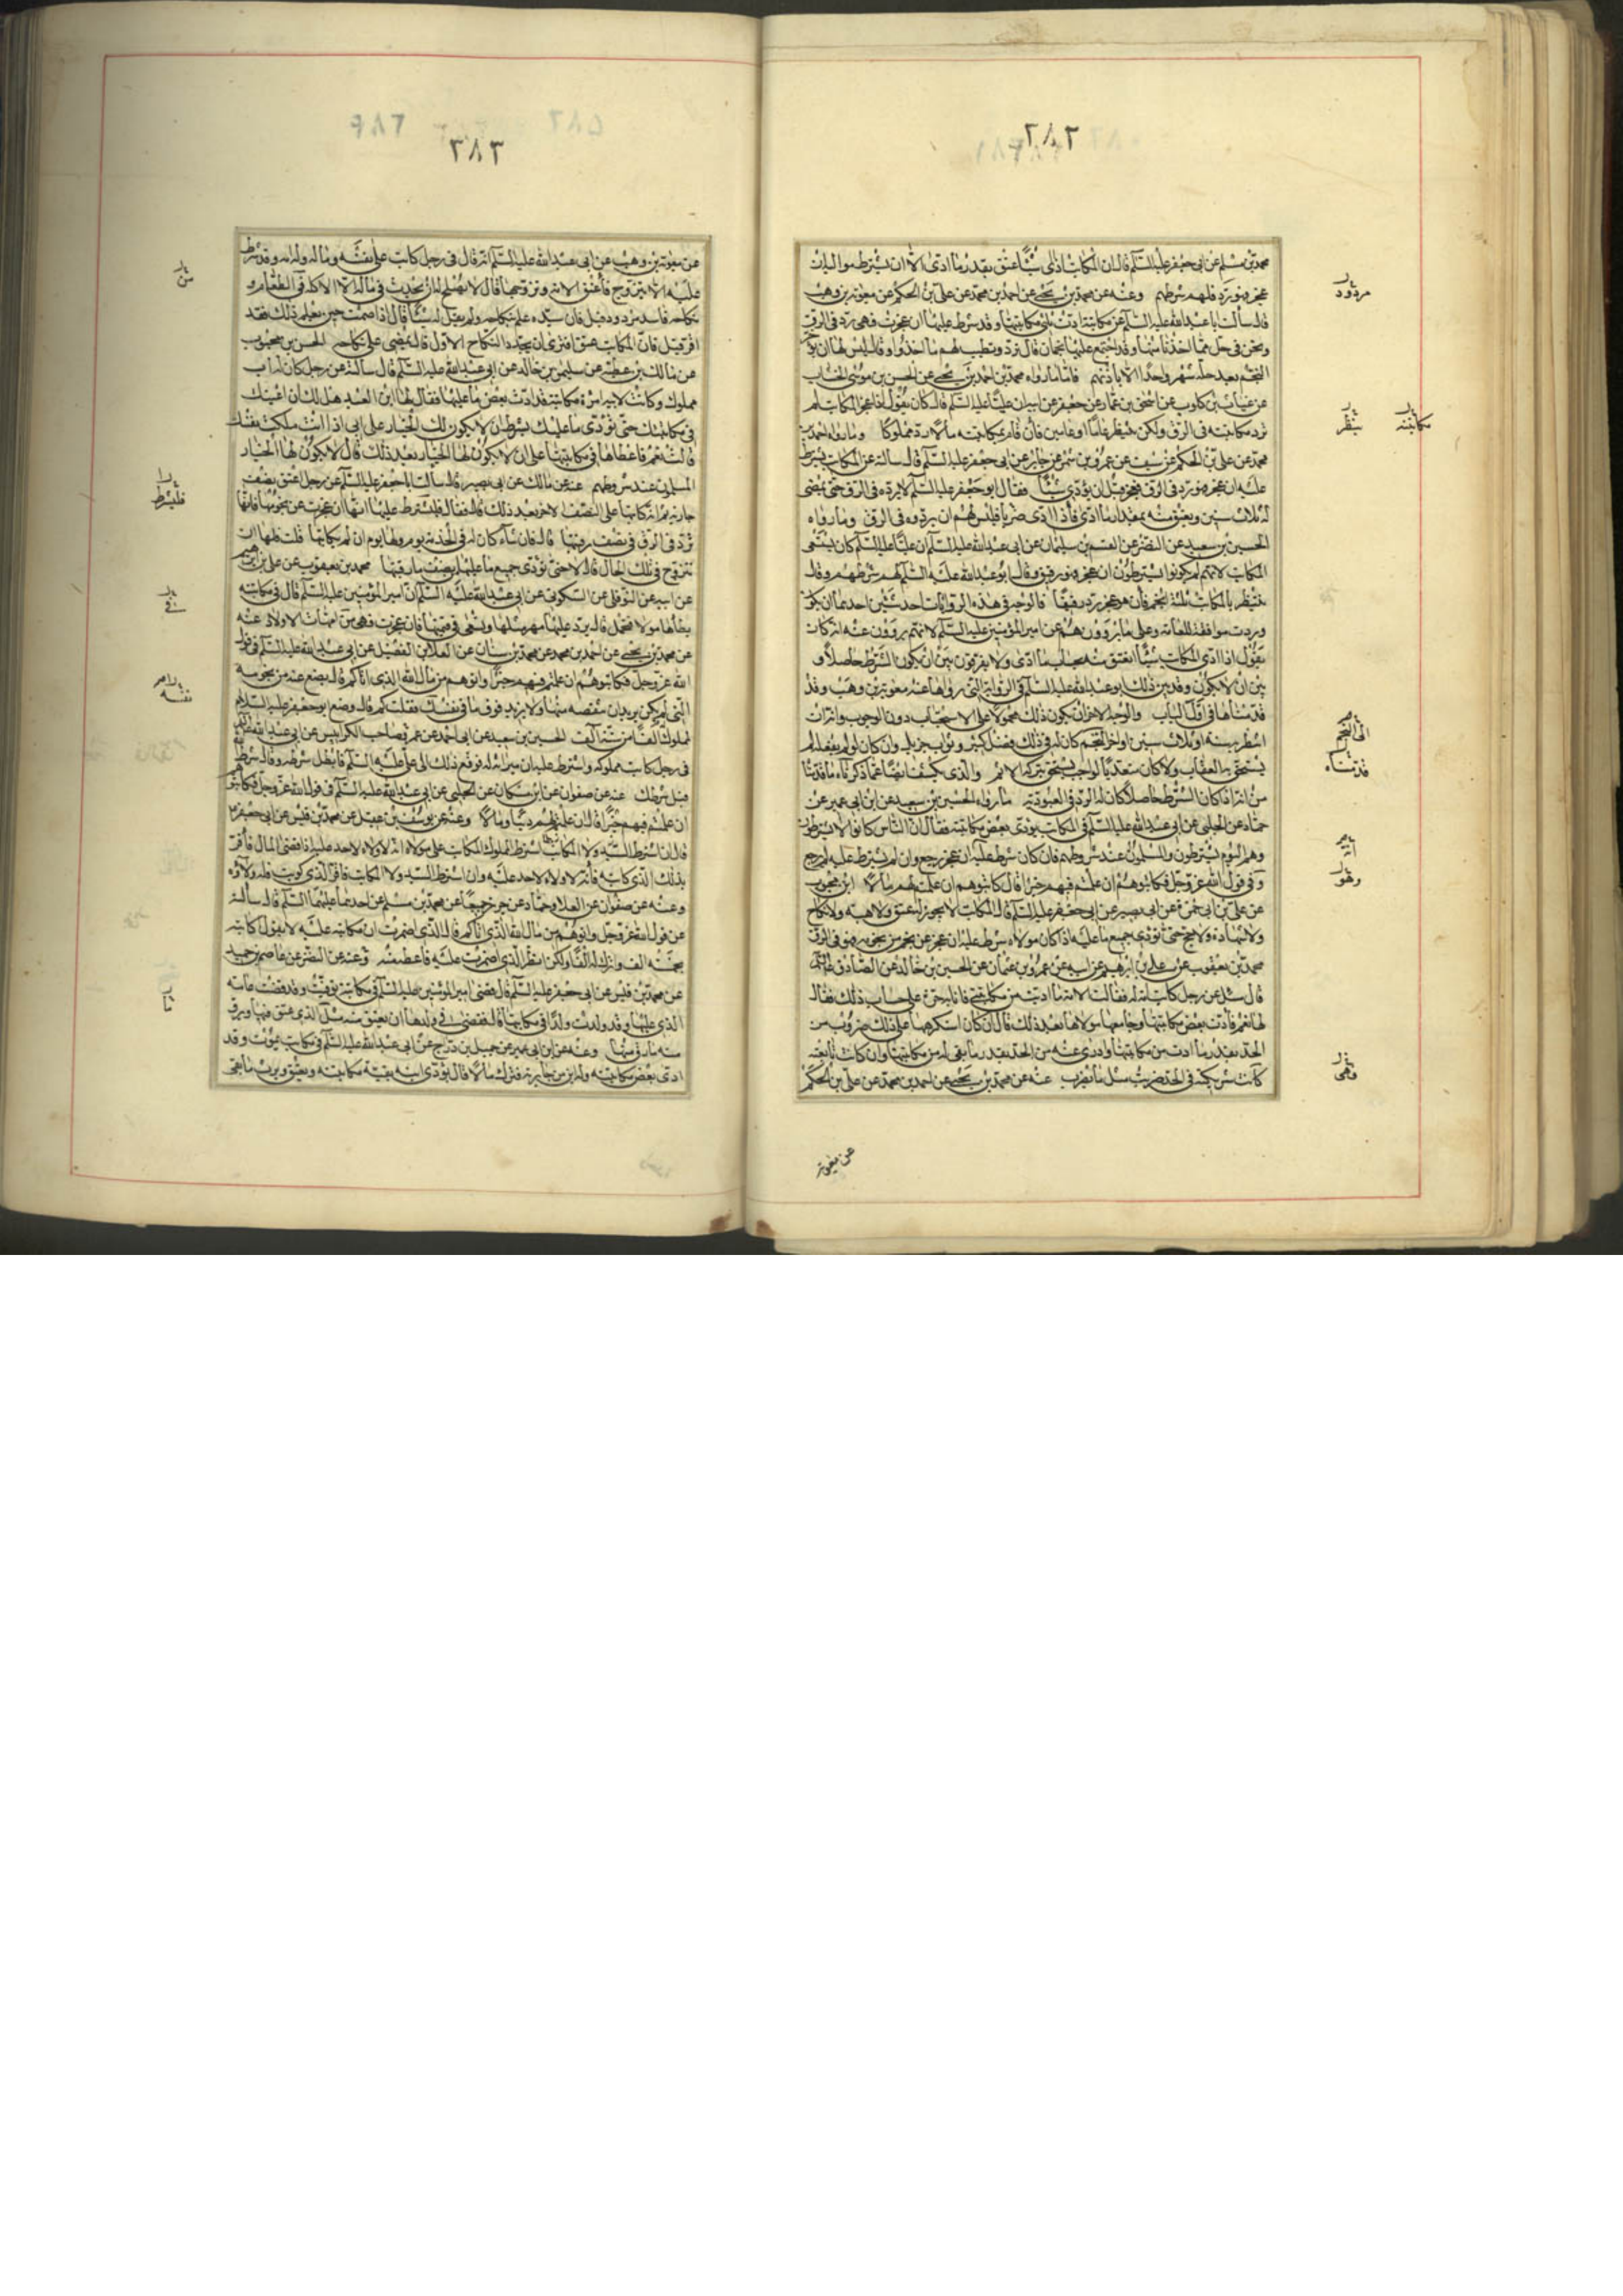 ٢٨٢
محمد بن مسلم عن ابی جعفر علیه السلم قال ان المکاتب اذا ادی شیئا عتق بقدر ما ادی الا ان یشترط موالیه ان
عجز فهو رد فلهم شرطهم وعنه عن محمد بن یحیی عن احمد بن محمد عن علی بن الحکم عن معویة بن وهب
قال سألت ابا عبد الله علیه السلم عن مکاتبة ادت ثلثی مکاتبتها وقد شرط علیها ان عجزت فهی رد فی الرق
ونحن فی حل مما اخذنا منها وقد اجتمع علیها نجمان قال ترد ویطیب لهم ما اخذوا وقال لیس لها ان تؤخر
النجم بعد حله شهر واحدا الا باذنهم فاما ما رواه محمد بن احمد بن یحیی عن الحسن بن موسی الخشاب
عن غیاث بن کلوب عن اسحق بن عمار عن جعفر عن ابیه ان علیا علیه السلم کان یقول اذا عجز المکاتب لم
ترد مکاتبته فی الرق ولکن ینتظر عاما او عامین فان قام بمکاتبته والا رد مملوکا وما رواه احمد بن
محمد عن علی بن الحکم عن سیف عن عمرو بن شمر عن جابر عن ابی جعفر علیه السلم قال سألته عن المکاتب یشترط
علیه ان عجز فهو رد فی الرق فعجز قبل ان یؤدی شیئا فقال ابو جعفر علیه السلم لا یرده فی الرق حتی یمضی
له ثلاث سنین ویعتق منه بمقدار ما ادی فاذا ادی ضربا فلیس لهم ان یردوه فی الرق وما رواه
الحسین بن سعید عن النضر عن القسم بن سلیمان عن ابی عبد الله علیه السلم ان علیا علیه السلم کان یستسعی
المکاتب لانهم لم یکونوا یشترطون ان عجز فهو رقیق وقال ابو عبد الله علیه السلم لهم شرطهم وقال
ینتظر بالمکاتب ثلثة انجم فان هو عجز رد رقیقا فالوجه فی هذه الروایات احد شیئین احدهما ان یکون
وردت موافقة للعامة وعلی ما یروون هم عن امیر المؤمنین علیه السلم لانهم یروون عنه انه کان
یقول اذا ادی المکاتب شیئا انعتق منه بحساب ما ادی ولا یفرقون بین ان یکون الشرط حاصلا و
بین ان لا یکون وقد بین ذلک ابو عبد الله علیه السلم فی الروایة التی رواها عنه معویة بن وهب وقد
قدمناها فی اول الباب والوجه الاخر ان یکون ذلک محمولا علی الاستحباب دون الوجوب وان من
انتظر سنة او ثلاث سنین اواخر النجم کان له فی ذلک فضل کثیر وثواب جزیل وان کان لو لم یفعله لم
یستحق به العقاب ولا کان متعدیا لواجب یستحق بترکه الاثم والذی یکشف ایضا عما ذکرناه ما قدمنا
من انه اذا کان الشرط حاصلا کان له الرد فی العبودیة ما رواه الحسین بن سعید عن ابن ابی عمیر عن
حماد عن الحلبی عن ابی عبد الله علیه السلم فی المکاتب یؤدی بعض مکاتبته فقال ان الناس کانوا لا یشترطون
وهم الیوم یشترطون والمسلمون عند شروطهم فان کان شرط علیه ان عجز رجع وان لم یشترط علیه لم یرجع
وفی قول الله عز وجل فکاتبوهم ان علمتم فیهم خیرا قال کاتبوهم ان علمتم لهم مالا ابن محبوب
عن علی بن ابی حمزة عن ابی بصیر عن ابی جعفر علیه السلم قال المکاتب لا یجوز له عتق ولا هبة ولا نکاح
ولا شهادة ولا حج حتی یؤدی جمیع ما علیه اذا کان مولاه شرط علیه ان عجز عن نجم من نجومه فهو فی الرق
محمد بن یعقوب عن علی بن ابرهیم عن ابیه عن عمرو بن عثمان عن الحسین بن خالد عن الصادق علیه السلم
قال سئل عن رجل کاتب امة له فقالت الامة ما ادیت من مکاتبتی فانا به حرة علی حساب ذلک فقال
لها نعم فادت بعض مکاتبتها وجامعها مولاها بعد ذلک قال ان کان استکرهها علی ذلک ضرب من
الحد بقدر ما ادت من مکاتبتها وادرئ عنه من الحد بقدر ما بقی له من مکاتبتها وان کانت تابعته
کانت شریکته فی الحد ضربت مثل ما یضرب عنه عن محمد بن یحیی عن احمد بن محمد عن علی بن الحکم
مردود
مکاتبته
ینتظر
اخر النجم
قدمناه
وهو
وهی
عن معویة
٢٨٢
عن معویة بن وهب عن ابی عبد الله علیه السلم انه قال فی رجل کاتب علی نفسه وماله وله امة وقد شرط
علیه الا یتزوج فاعتق الامة وتزوجها قال لا یصلح له ان یحدث فی ماله الا الاکلة فی الطعام و
نکاحه فاسد مردود قیل فان سیده علم بنکاحه ولم یقل له شیئا قال اذا صمت حین یعلم ذلک فقد
اقر قیل فان المکاتب عتق افتری ان یجدد النکاح او یمضی علی النکاح الاول قال یمضی علی نکاحه الحسن بن محبوب
عن مالک بن عطیة عن سلیمن بن خالد عن ابی عبد الله علیه السلم قال سألته عن رجل کان له اب
مملوک وکانت لابیه امرأة مکاتبة قد ادت بعض ما علیها فقال لها ابن العبد هل لک ان اعینک
فی مکاتبتک حتی تؤدی ما علیک بشرط ان لا یکون لک الخیار علی ابی اذا انت ملکت نفسک
قالت نعم فاعطاها فی مکاتبتها علی ان لا یکون لها الخیار بعد ذلک قال لا یکون لها الخیار
المسلمون عند شروطهم عنه عن مالک عن ابی بصیر قال سألت ابا جعفر علیه السلم عن رجل اعتق نصف
جاریته ثم انه کاتبها علی النصف الاخر بعد ذلک قال فقال فلیشترط علیها انها ان عجزت عن نجومها فانها
ترد فی الرق فی نصف رقبتها قال فان شاء کان له فی الخدمة یوم ولها یوم ان لم یکاتبها قلت فلها ان
تتزوج فی تلک الحال قال لا حتی تؤدی جمیع ما علیها بنصف رقبتها محمد بن یعقوب عن علی بن ابرهیم
عن ابیه عن النوفلی عن السکونی عن ابی عبد الله علیه السلم ان امیر المؤمنین علیه السلم قال فی مکاتبة
یطأها مولاها فتحمل قال یرد علیها مهر مثلها وتسعی فی قیمتها فان عجزت فهی من امهات الاولاد عنه
عن محمد بن یحیی عن احمد بن محمد عن محمد بن سنان عن العلا بن الفضیل عن ابی عبد الله علیه السلم فی قول
الله عز وجل فکاتبوهم ان علمتم فیهم خیرا واتوهم من مال الله الذی اتاکم قال یضع عنه من نجومه
التی لم یکن یرید ان ینقصه منها ولا یزید فوق ما فی نفسک فقلت کم قال وضع ابو جعفر علیه السلام
لمملوک الفا من ستة الف الحسین بن سعید عن ابی احمد عن عمر صاحب الکرابیس عن ابی عبد الله علیه السلم
فی رجل کاتب مملوکه واشترط علیه ان میراثه له فرفع ذلک الی علی علیه السلم فابطل شرطه وقال شرط الله
قبل شرطک عنه عن صفوان عن ابن مسکان عن الحلبی عن ابی عبد الله علیه السلم فی قول الله عز وجل فکاتبوهم
ان علمتم فیهم خیرا قال ان علمتم لهم دینا ومالا وعنه عن یوسف بن عقیل عن محمد بن قیس عن ابی جعفر ع
قال ان اشترط المملوک المکاتب علی مولاه انه لا ولاء لاحد علیه اذا قضی المال فاقر
بذلک الذی کاتبه فانه لا ولاء لاحد علیه وان اشترط السید ولا المکاتب فاقر الذی کوتب فله ولاؤه
وعنه عن صفوان عن العلا وحماد عن حریز جمیعا عن محمد بن مسلم عن احدهما علیهما السلم قال سألته
عن قول الله عز وجل واتوهم من مال الله الذی اتاکم قال الذی اضمرت ان مکاتبته علیه لا یقول اکاتبه
بخمسة الف واترک له الفا ولکن انظر الذی اضمرت علیه فاعطه منه وعنه عن النضر عن عاصم بن حمید
عن محمد بن قیس عن ابی جعفر علیه السلم قال قضی امیر المؤمنین علیه السلم فی مکاتبة توفیت وقد قضت عامة
الذی علیها وقد ولدت ولدا فی مکاتبتها قال فقضی فی ولدها ان یعتق منه مثل الذی عتق منها ویرق
منه ما رق منها وعنه عن ابن ابی عمیر عن جمیل بن دراج عن ابی عبد الله علیه السلم فی مکاتب یموت وقد
ادی بعض مکاتبته وله ابن من جاریته وترک مالا قال یؤدی ابنه بقیة مکاتبته ویعتق ویرث ما بقی
من
فلیشترط
نفسه